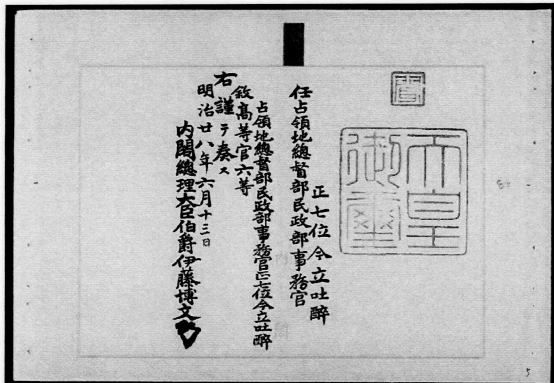 天皇御璽
正七位今立吐醉
任占領地總督部民政部事務官
占領地總督部民政部事務官正七位今立吐醉
敍高等官六等
右謹テ奏ス
明治廿八年六月十三日
内閣總理大臣伯爵伊藤博文
5